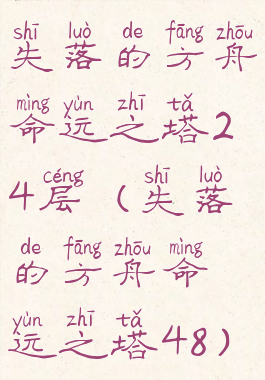 shī luò de fāng zhōu
失落的方舟
mìng yùn zhī tǎ
命远之塔2
céng shī luò
4层（失落
de fāng zhōu mìng
的方舟命
yùn zhī tǎ
远之塔48）